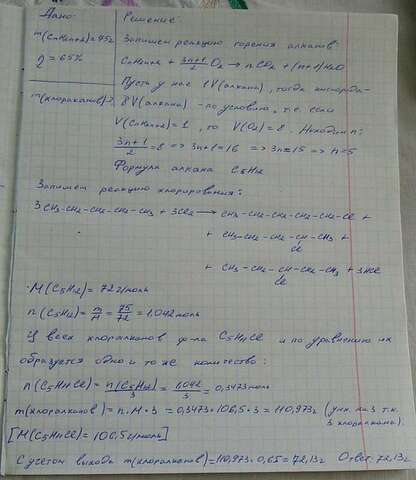 Дано:
m(CnH2n+2)=75г
η=65%
m(хлоралканов)-?
Решение:
Запишем реакцию горения алканов:
CnH2n+2 + 3n+1/2 O2 → nCO2 + (n+1)H2O
Пусть у нас 1V(алкана), тогда кислорода-
8V(алкана) - по условию, т.е. если
V(CnH2n+2)=1, то V(O2)=8. Находим n:
3n+1/2=8 => 3n+1=16 => 3n=15 => n=5
Формула алкана C5H12
Запишем реакцию хлорирования:
3CH3-CH2-CH2-CH2-CH3 + 3Cl2 → CH3-CH2-CH2-CH2-CH2-Cl +
+ CH3-CH2-CH2-CH-CH3 +
Cl
+ CH3-CH2-CH-CH2-CH3 + 3HCl
Cl
M(C5H12)=72г/моль
n(C5H12)=m/M=75/72=1.042моль
У всех хлоралканов ф-ла C5H11Cl и по уравнению их
образуется одно и то же количество:
n(C5H11Cl)=n(C5H12)/3=1.042/3=0,3473моль
m(хлоралканов)=n·M·3=0,3473·106,5·3=110,973г (умн. на 3 т.к.
3 хлоралкана).
[M(C5H11Cl)=106,5г/моль]
С учетом выхода m(хлоралканов)=110,973·0,65=72,13г Ответ: 72,13г